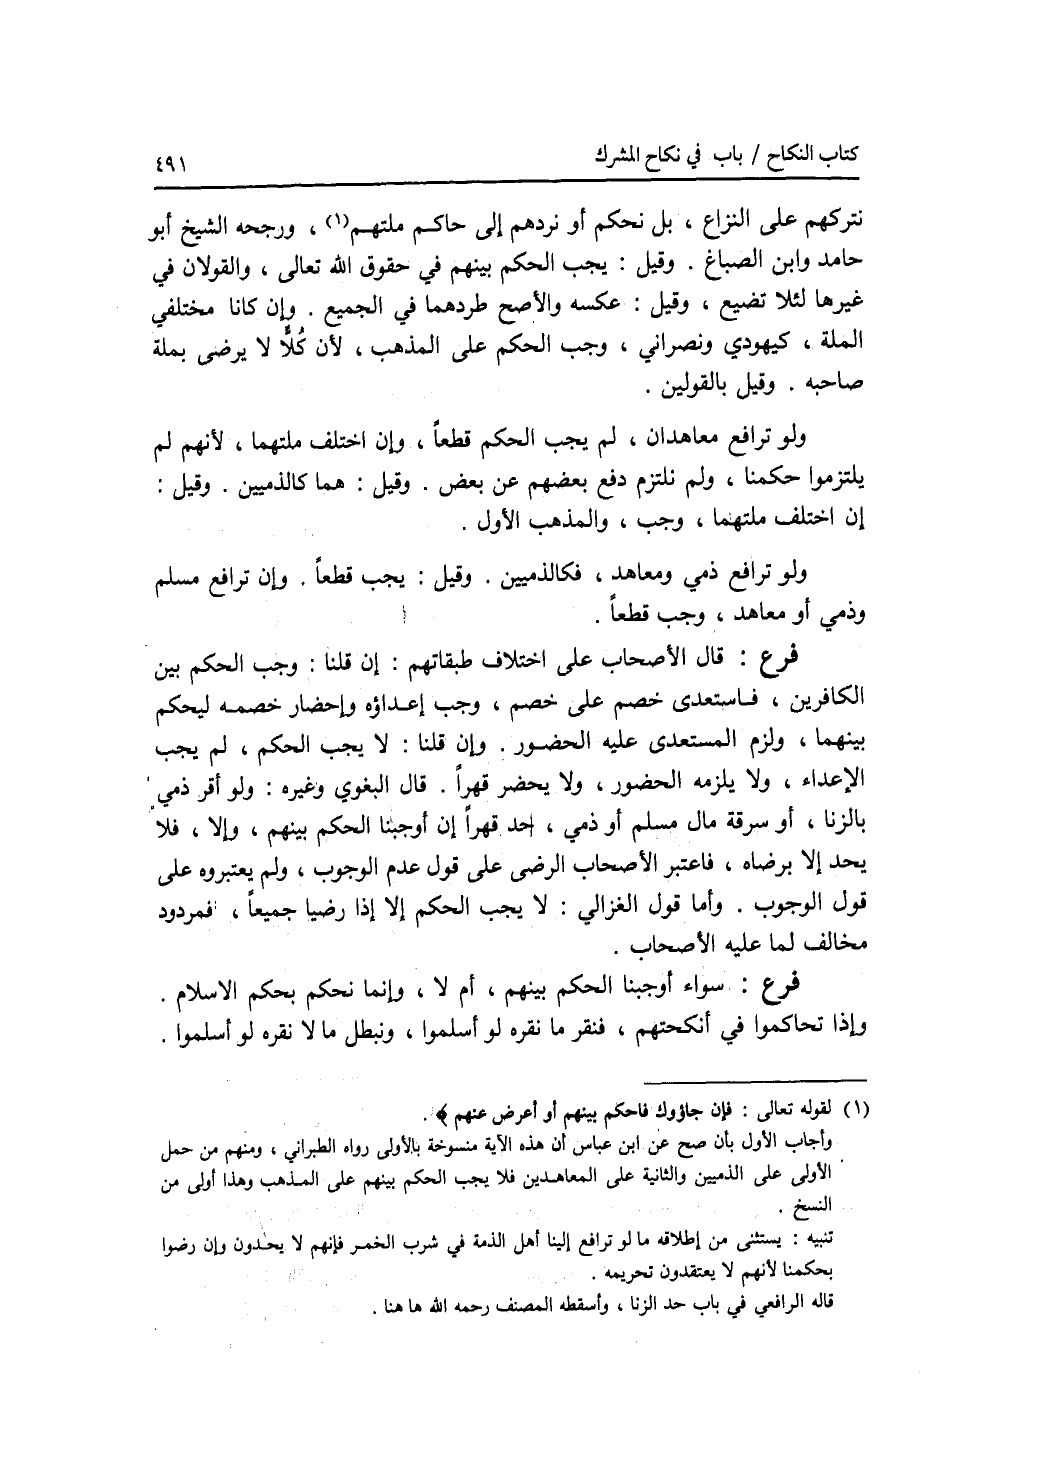 كتاب النكاح / باب في نكاح المشرك
٤٩١
نتركهم على النزاع ، بل نحكم أو نردهم إلى حاكم ملتهم(١) ، ورجحه الشيخ أبو
حامد وابن الصباغ . وقيل : يجب الحكم بينهم في حقوق الله تعالى ، والقولان في
غيرها لئلا تضيع ، وقيل : عكسه والأصح طردهما في الجميع . وإن كانا مختلفي
الملة ، كيهودي ونصراني ، وجب الحكم على المذهب ، لأن كُلاًّ لا يرضى بملة
صاحبه . وقيل بالقولين .
ولو ترافع معاهدان ، لم يجب الحكم قطعاً ، وإن اختلف ملتهما ، لأنهم لم
يلتزموا حكمنا ، ولم نلتزم دفع بعضهم عن بعض . وقيل : هما كالذميين . وقيل :
إن اختلف ملتهما ، وجب ، والمذهب الأول .
ولو ترافع ذمي ومعاهد ، فكالذميين . وقيل : يجب قطعاً . وإن ترافع مسلم
وذمي أو معاهد ، وجب قطعاً .
فرع : قال الأصحاب على اختلاف طبقاتهم : إن قلنا : وجب الحكم بين
الكافرين ، فاستعدى خصم على خصم ، وجب إعداؤه وإحضار خصمه ليحكم
بينهما ، ولزم المستعدى عليه الحضور . وإن قلنا : لا يجب الحكم ، لم يجب
الإعداء ، ولا يلزمه الحضور ، ولا يحضر قهراً . قال البغوي وغيره : ولو أقر ذمي
بالزنا ، أو سرقة مال مسلم أو ذمي ، حد قهراً إن أوجبنا الحكم بينهم ، وإلا ، فلا
يحد إلا برضاه ، فاعتبر الأصحاب الرضى على قول عدم الوجوب ، ولم يعتبروه على
قول الوجوب . وأما قول الغزالي : لا يجب الحكم إلا إذا رضيا جميعاً ، فمردود
مخالف لما عليه الأصحاب .
فرع : سواء أوجبنا الحكم بينهم ، أم لا ، وإنما نحكم بحكم الاسلام .
وإذا تحاكموا في أنكحتهم ، فنقر ما نقره لو أسلموا ، ونبطل ما لا نقره لو أسلموا .
(١) لقوله تعالى : فإن جاؤوك فاحكم بينهم أو أعرض عنهم ﴾ .
وأجاب الأول بأن صح عن ابن عباس أن هذه الآية منسوخة بالأولى رواه الطبراني ، ومنهم من حمل
الأولى على الذميين والثانية على المعاهدين فلا يجب الحكم بينهم على المذهب وهذا أولى من
النسخ .
تنبيه : يستثنى من إطلاقه ما لو ترافع إلينا أهل الذمة في شرب الخمر فإنهم لا يحدون وإن رضوا
بحكمنا لأنهم لا يعتقدون تحريمه .
قاله الرافعي في باب حد الزنا ، وأسقطه المصنف رحمه الله ها هنا .